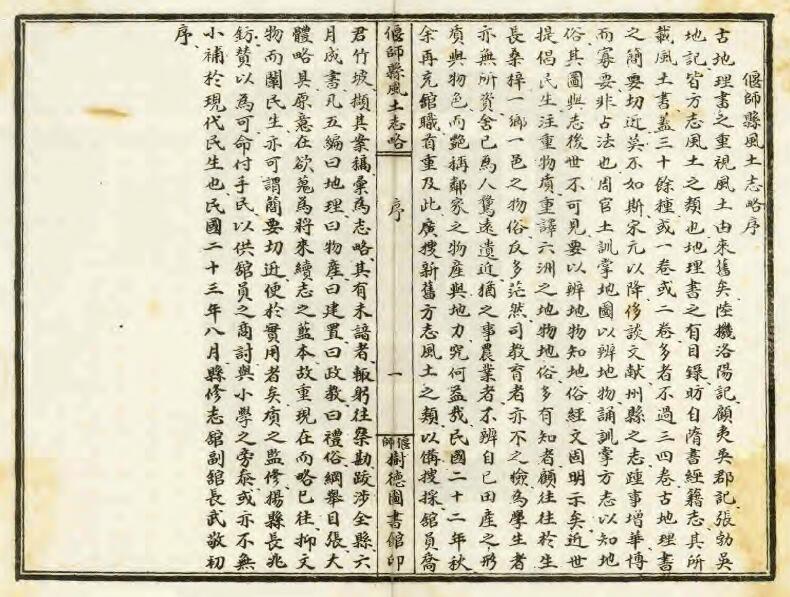 偃師縣風土志略序
古地理書之重視風土由來舊矣陸機洛陽記顧夷吳郡記張勃吳
地記皆方志風土之類也地理書之有目錄昉自隋書經籍志其所
載風土書蓋三十餘種或一卷或二卷多者不過三四卷古地理書
之簡要切近莫不如斯宋元以降侈談文献州縣之志踵事增華博
而寡要非古法也周官土訓掌地圖以辨地物誦訓掌方志以知地
俗其圖與志後世不可見要以辨地物知地俗經文固明示矣近世
提倡民生注重物質重譯六洲之地物地俗多有知者顧往往於生
長桑梓一鄉一邑之物俗反多茫然司教育者亦不之檢為學生者
亦無所資舍已為人騖遠遺近猶之事農業者不辨自已田產之形
質與物色而艷稱鄰家之物產與地力究何益哉民國二十二年秋
余再充舘職首重及此廣搜新舊方志風土之類以備搜採舘員喬
偃師縣風土志略
序
一
偃師樹德圖書舘印
君竹坡擷其案稿彙為志略其有未諳者輒躬往查勘跋涉全縣六
月成書凡五編曰地理曰物產曰建置曰政教曰禮俗綱舉目張大
體略具原意在欲蒐為將來續志之藍本故重現在而略已往抑文
物而闡民生亦可謂簡要切近便於實用者矣質之監修揚縣長兆
鈁贊以為可命付手民以供舘員之商討與小學之旁泰或亦不無
小補於現代民生也民國二十三年八月縣修志舘副舘長武敬初
序